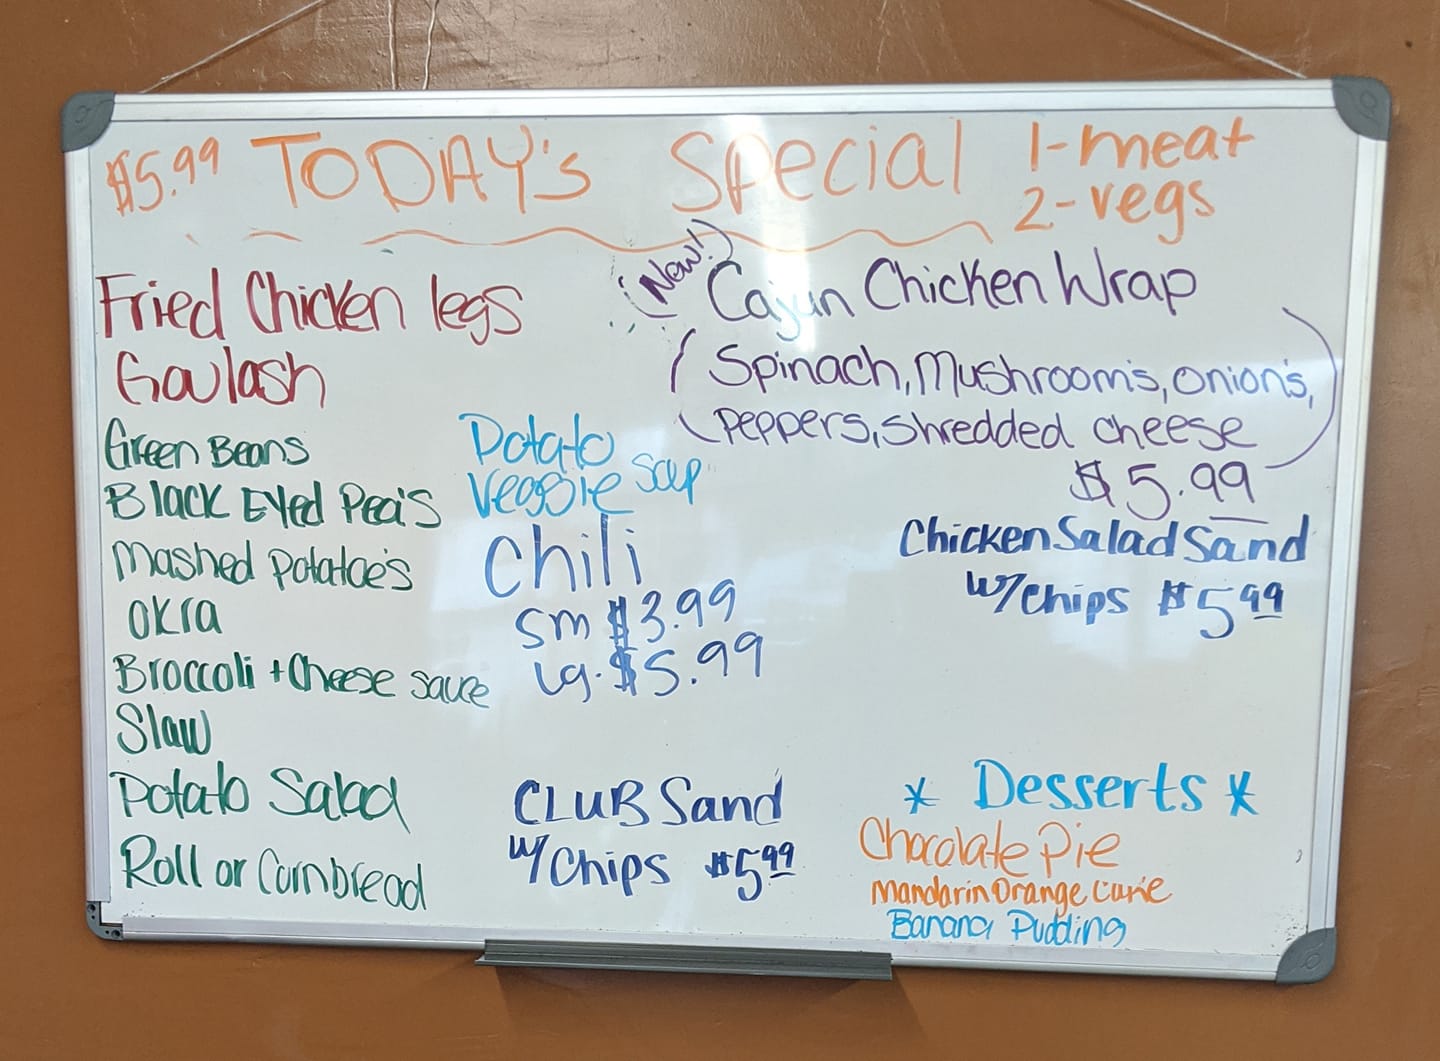 $5.99 TODAY's Special
1-meat
2-vegs
Fried Chicken legs
Goulash
Green Beans
Black Eyed Pea's
Mashed Potatoe's
OKra
Broccoli + Cheese sauce
Slaw
Potato Salad
Roll or Cornbread
Potato
Veggie Soup
Chili
sm $3.99
Lg. $5.99
CLUB Sand
w/ Chips $5.99
(New!) Cajun Chicken Wrap
(Spinach, Mushroom's, onion's,
peppers, shredded cheese)
$5.99
Chicken Salad Sand
w/ Chips $5.99
* Desserts *
Chocolate Pie
Mandarin Orange Cake
Banana Pudding